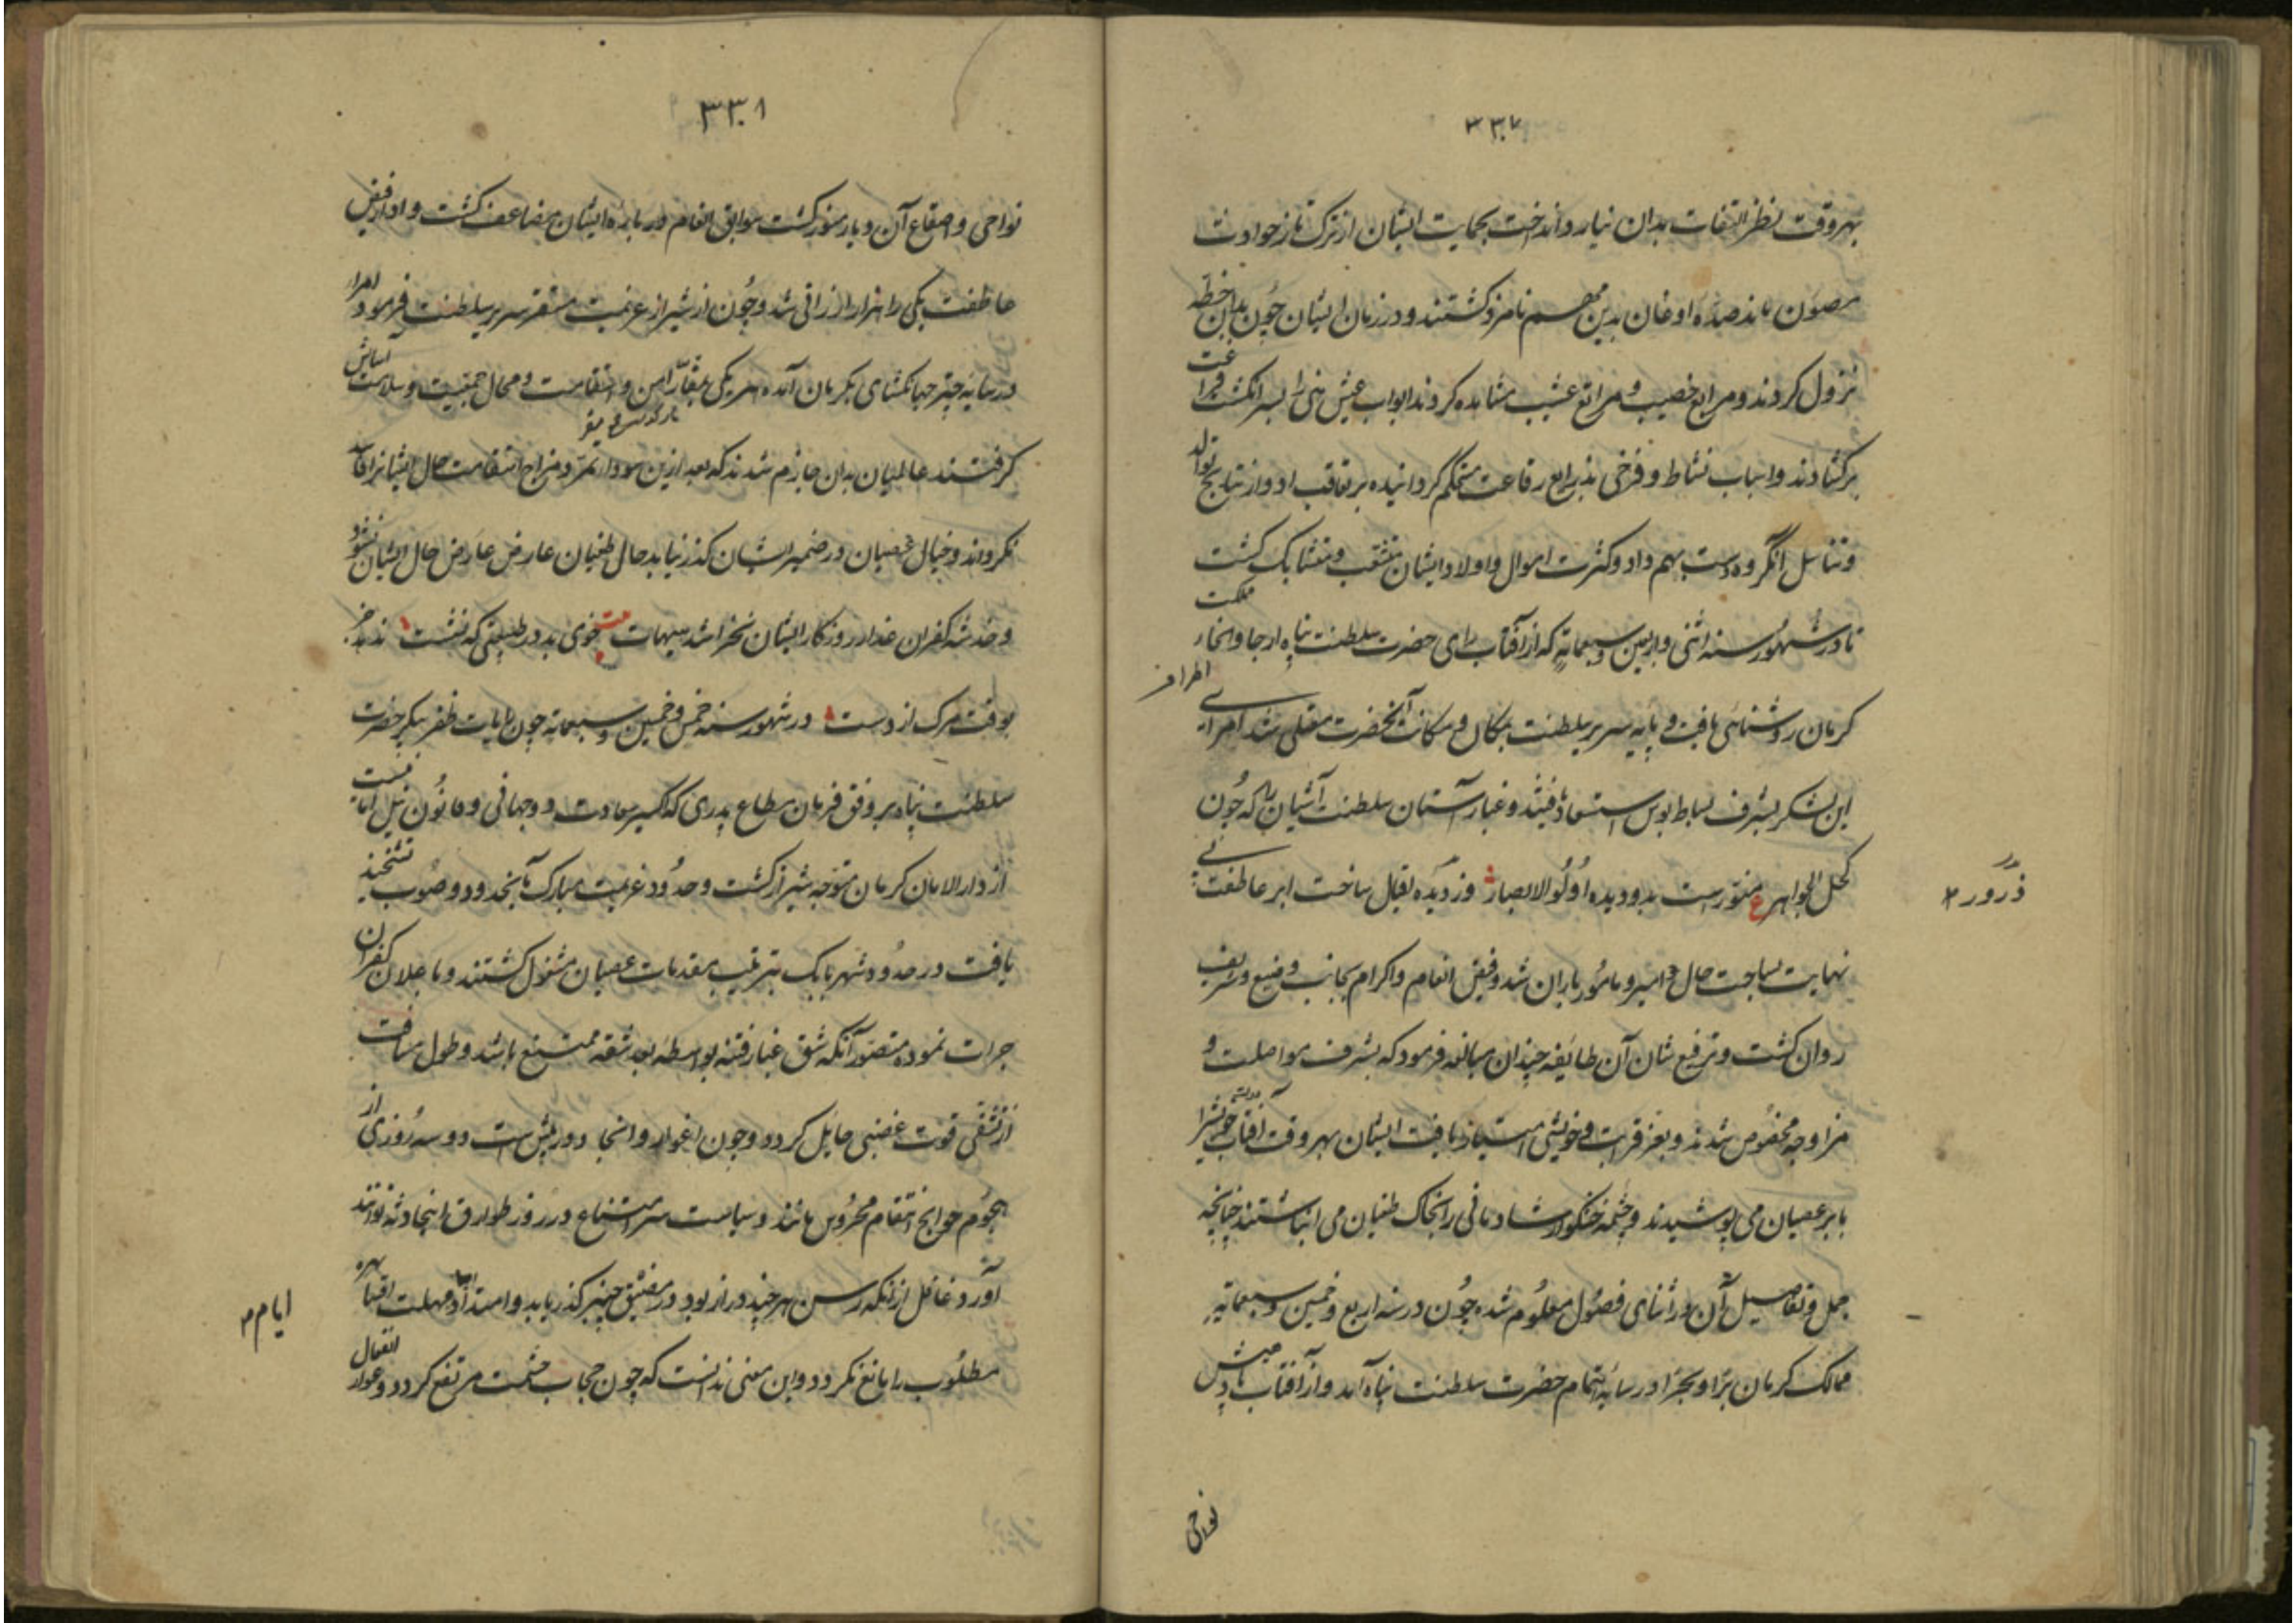 ۳۳۷
بهر وقت نظر التفات بدان نیارد انداخت بحمایت ایشان از ترکتاز حوادث
مصون ماند صده اوغان بدین مهم نامزد کشتند و در زمان ایشان چون بدان خطه
نزول کردند و مرابع خصیب و مراتع عشیب مشاهده کردند ابواب عیش هنی را بسر انکشت فراغت
برکشادند و اسباب نشاط و فرخی بذرایع رفاعت مستحکم کردانیده بر تعاقب ادوار نتایج توالد
و تناسل انگروه دست بهم داد و کثرت اموال و اولاد ایشان متشعب و متشابک کشت
تا در شهور سنه اثنی و اربعین و سبعمایة که از آفتاب رای حضرت سلطنت پناه ارجا و انحاء مملکت
کرمان روشنائی یافت و پایه سریر سلطنت بمکان و مکانت آنحضرت معلی شد امرای اطراف
این لشکر بشرف بساط بوس استسعاد یافتند و غبار آستان سلطنت آشیان را که چون
کحل الجواهر ع منور است بدو دیده اولو الابصار ذرور دیده اقبال ساخت ابر عاطفت بی
ذرور
نهایت بساحت حال امیر و مامور باران شد و فیض انعام و اکرام بجانب وضیع و شریف
روان کشت و ترفیع شان آن طایفه چندان مبالغه فرمود که بشرف مواصلت و
مزاوجه مخصوص شدند و بعز قرابت و خویشی امتیاز یافت ایشان بهر وقت آفتاب حق را
بابر عصیان می پوشیدند و چشمه خنکوار شادمانی را بخاک طغیان می انباشتند چنانچه
جمل و تفاصیل آن در اثنای فصول معلوم شده چون در سنه اربع و خمسین و سبعمایة
ممالک کرمان برا و بحرا در سایه اهتمام حضرت سلطنت پناه آمد و از آفتاب
نواحی
۳۳۸
نواحی و اصقاع آن دیار منور کشت سوابق انعام در باره ایشان مضاعف کشت و ادرار فیض
عاطفت یکی را هزار ارزانی شد و چون از شیراز عزیمت مستقر سریر سلطنت فرمود امرا
در سایه چتر جهانکشای بکرمان آمده هر یکی بمقار امن و استقامت و محال جمعیت و سلامت آسایش
کرفتند عالمیان بدان جازم شدند که بعد ازین سودای تمرد مزاج استقامت حال ایشانرا فاسد
نکرداند و خیال عصیان در ضمیر ایشان کذر نیابد خال طغیان عارض عارض حال ایشان نشود
و خدشه کفران عذار روزکار ایشان نخراشد هیهات خوی بد در طبیعتی که نشست ندهد جز
بوقت مرک از دست در شهور سنه خمس و خمسین و سبعمایه چون رایات ظفر پیکر حضرت
سلطنت پناه بر وفق فرمان مطاع پدری که اکسیر سعادت دو جهانی و قانون نیل امانیست
از دار الامان کرمان متوجه شیراز کشت و حدود عزیمت مبارک بانحدود و صوب تشحیذ
یافت در حدود شهر بابک بترتیب مقدمات عصیان مشغول کشتند و باعلان کفران
جرات نموده متصور آنکه شق غبار فتنه بواسطه بعد شقه ممتنع باشد و طول مسافت
از تشفی قوت غضبی حایل کردد و چون اغوار و انجاد در پیش است دو سه روزی از
هجوم حوایج انتقام محروس مانند و سیاست سر امتناع در روز طوارق اینحادثه توانند
آورد غافل ازانکه رسن هر چند دراز بود در مضیق چنبر کذر یابد و امتداد مهلت
ایام
مطلوب را مانع نکردد و این معنی ندانست که چون حجاب حشمت مرتفع کردد و عوار افعال